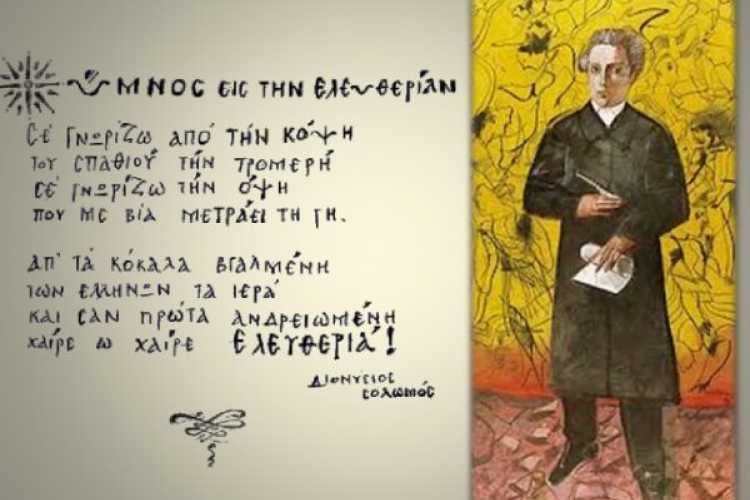 ὝΜΝΟΣ ΕΙΣ ΤΗΝ ΕΛΕΥΘΕΡΊΑΝ
ΣΕ ΓΝΩΡΊΖΩ ΑΠΌ ΤΉΝ ΚΌΨΗ
ΤΟΥ ΣΠΑΘΙΟΎ ΤΉΝ ΤΡΟΜΕΡΉ
ΣΈ ΓΝΩΡΊΖΩ ΤΉΝ ΌΨΗ
ΠΟΥ ΜΕ ΒΊΑ ΜΕΤΡΆΕΙ ΤΗ ΓΗ.
ΑΠ' ΤΆ ΚΌΚΑΛΑ ΒΓΑΛΜΈΝΗ
ΤΩΝ ΕΛΛΗΝΩΝ ΤΑ ΙΕΡΆ
ΚΑΙ ΣΑΝ ΠΡΏΤΑ ΑΝΔΡΕΙΩΜΈΝΗ
ΧΑΊΡΕ Ω ΧΑΊΡΕ ΕΛΕΥΘΕΡΙΆ!
ΔΙΟΝΥΣΙΟΣ
ΣΟΛΩΜΌΣ